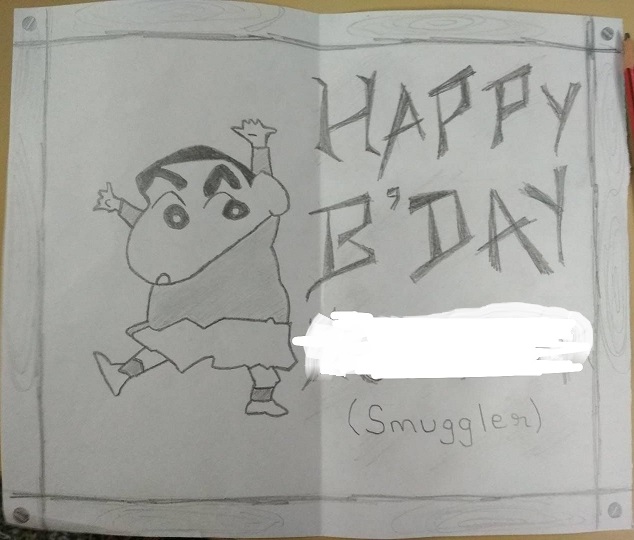 HAPPY
B'DAY
(Smuggler)